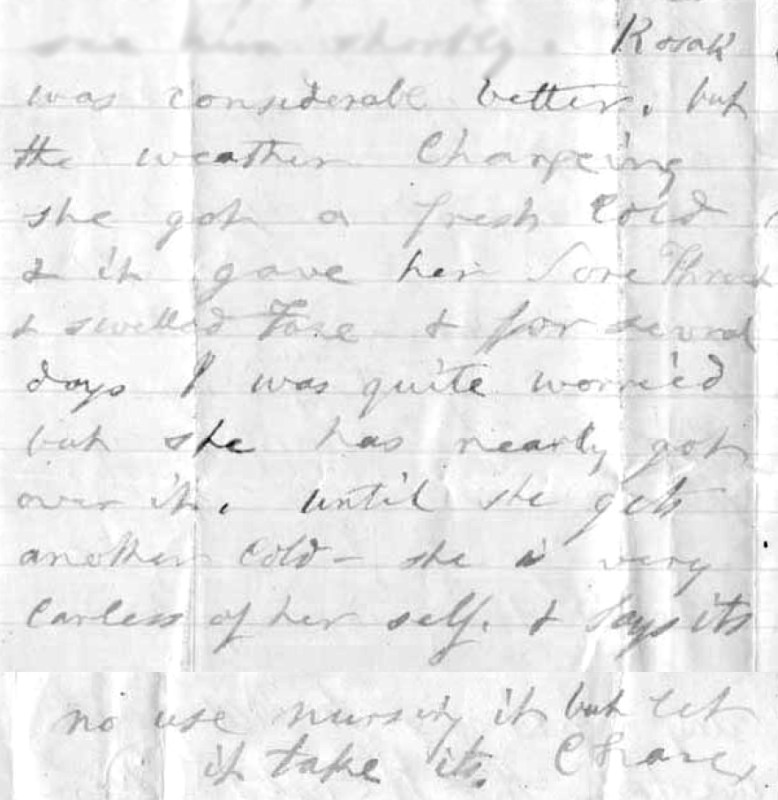 see him shortly. Rosak
was considerable better. but
the weather Changeing
she got a fresh Cold
& it gave her Sore Throat
& swelled Face & for several
days I was quite worried
but she has nearly got
over it. until she gets
another Cold - she is very
Carless of her self. & Says its
no use nursing it but let
it take its. Chance